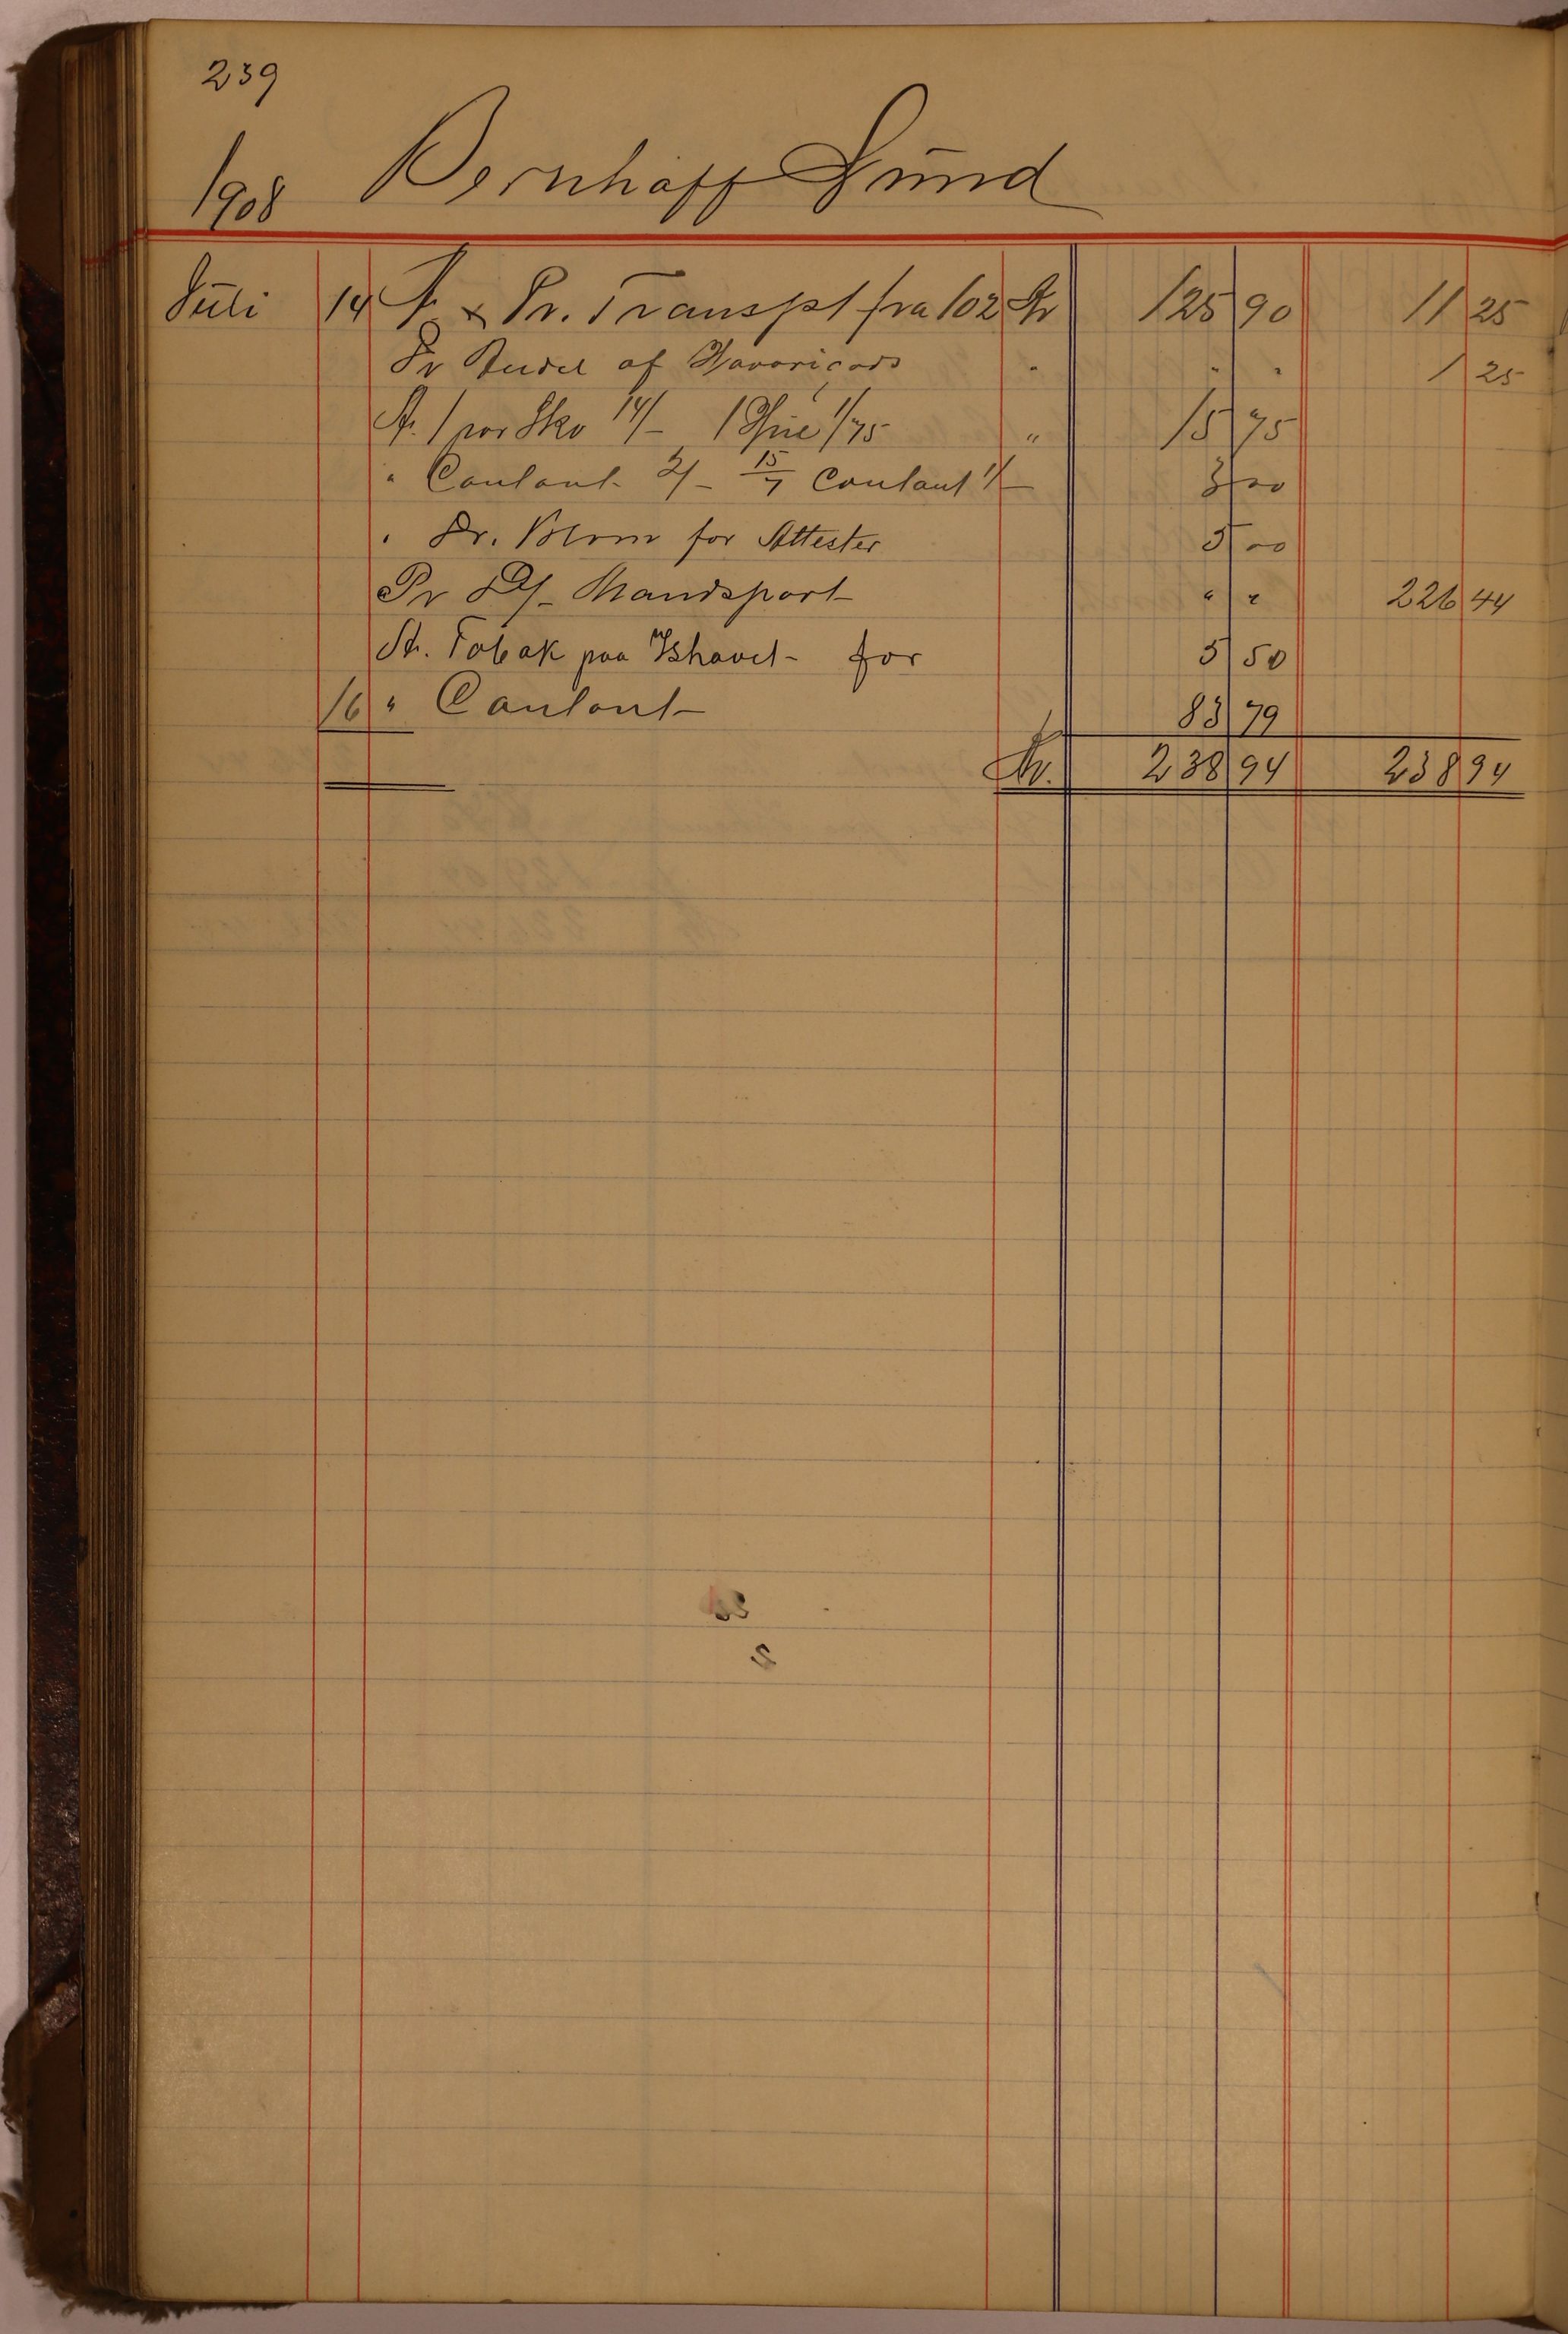 239
1908 Bernhoff Lund
Juli 14 At. & Pr. Transpt fra 102 Kr 125 90 11 25
Pr Andel af Havarigods " " " 1 25
At. 1 par Sko 14/- 1 Hue 1/75 " 15 75
" Contant 2/- 15/7 Contant 1/- 3 00
" Dr. Blom for Attester 5 00
Pr 1/1 Mandspart " " 226 44
At. Tobak paa Ishavet for 5 50
16 " Contant 83 79
Kr. 238 94 238 94